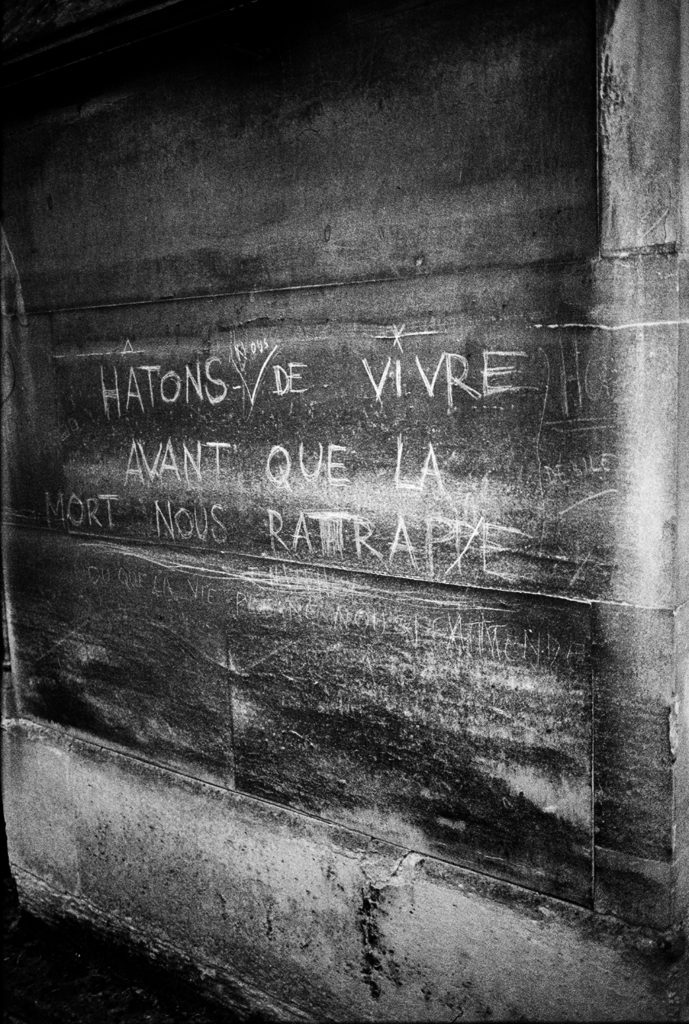 HÂTONS-NOUS DE VIVRE
AVANT QUE LA
MORT NOUS RATTRAPPE
QUE LA VIE NOUS